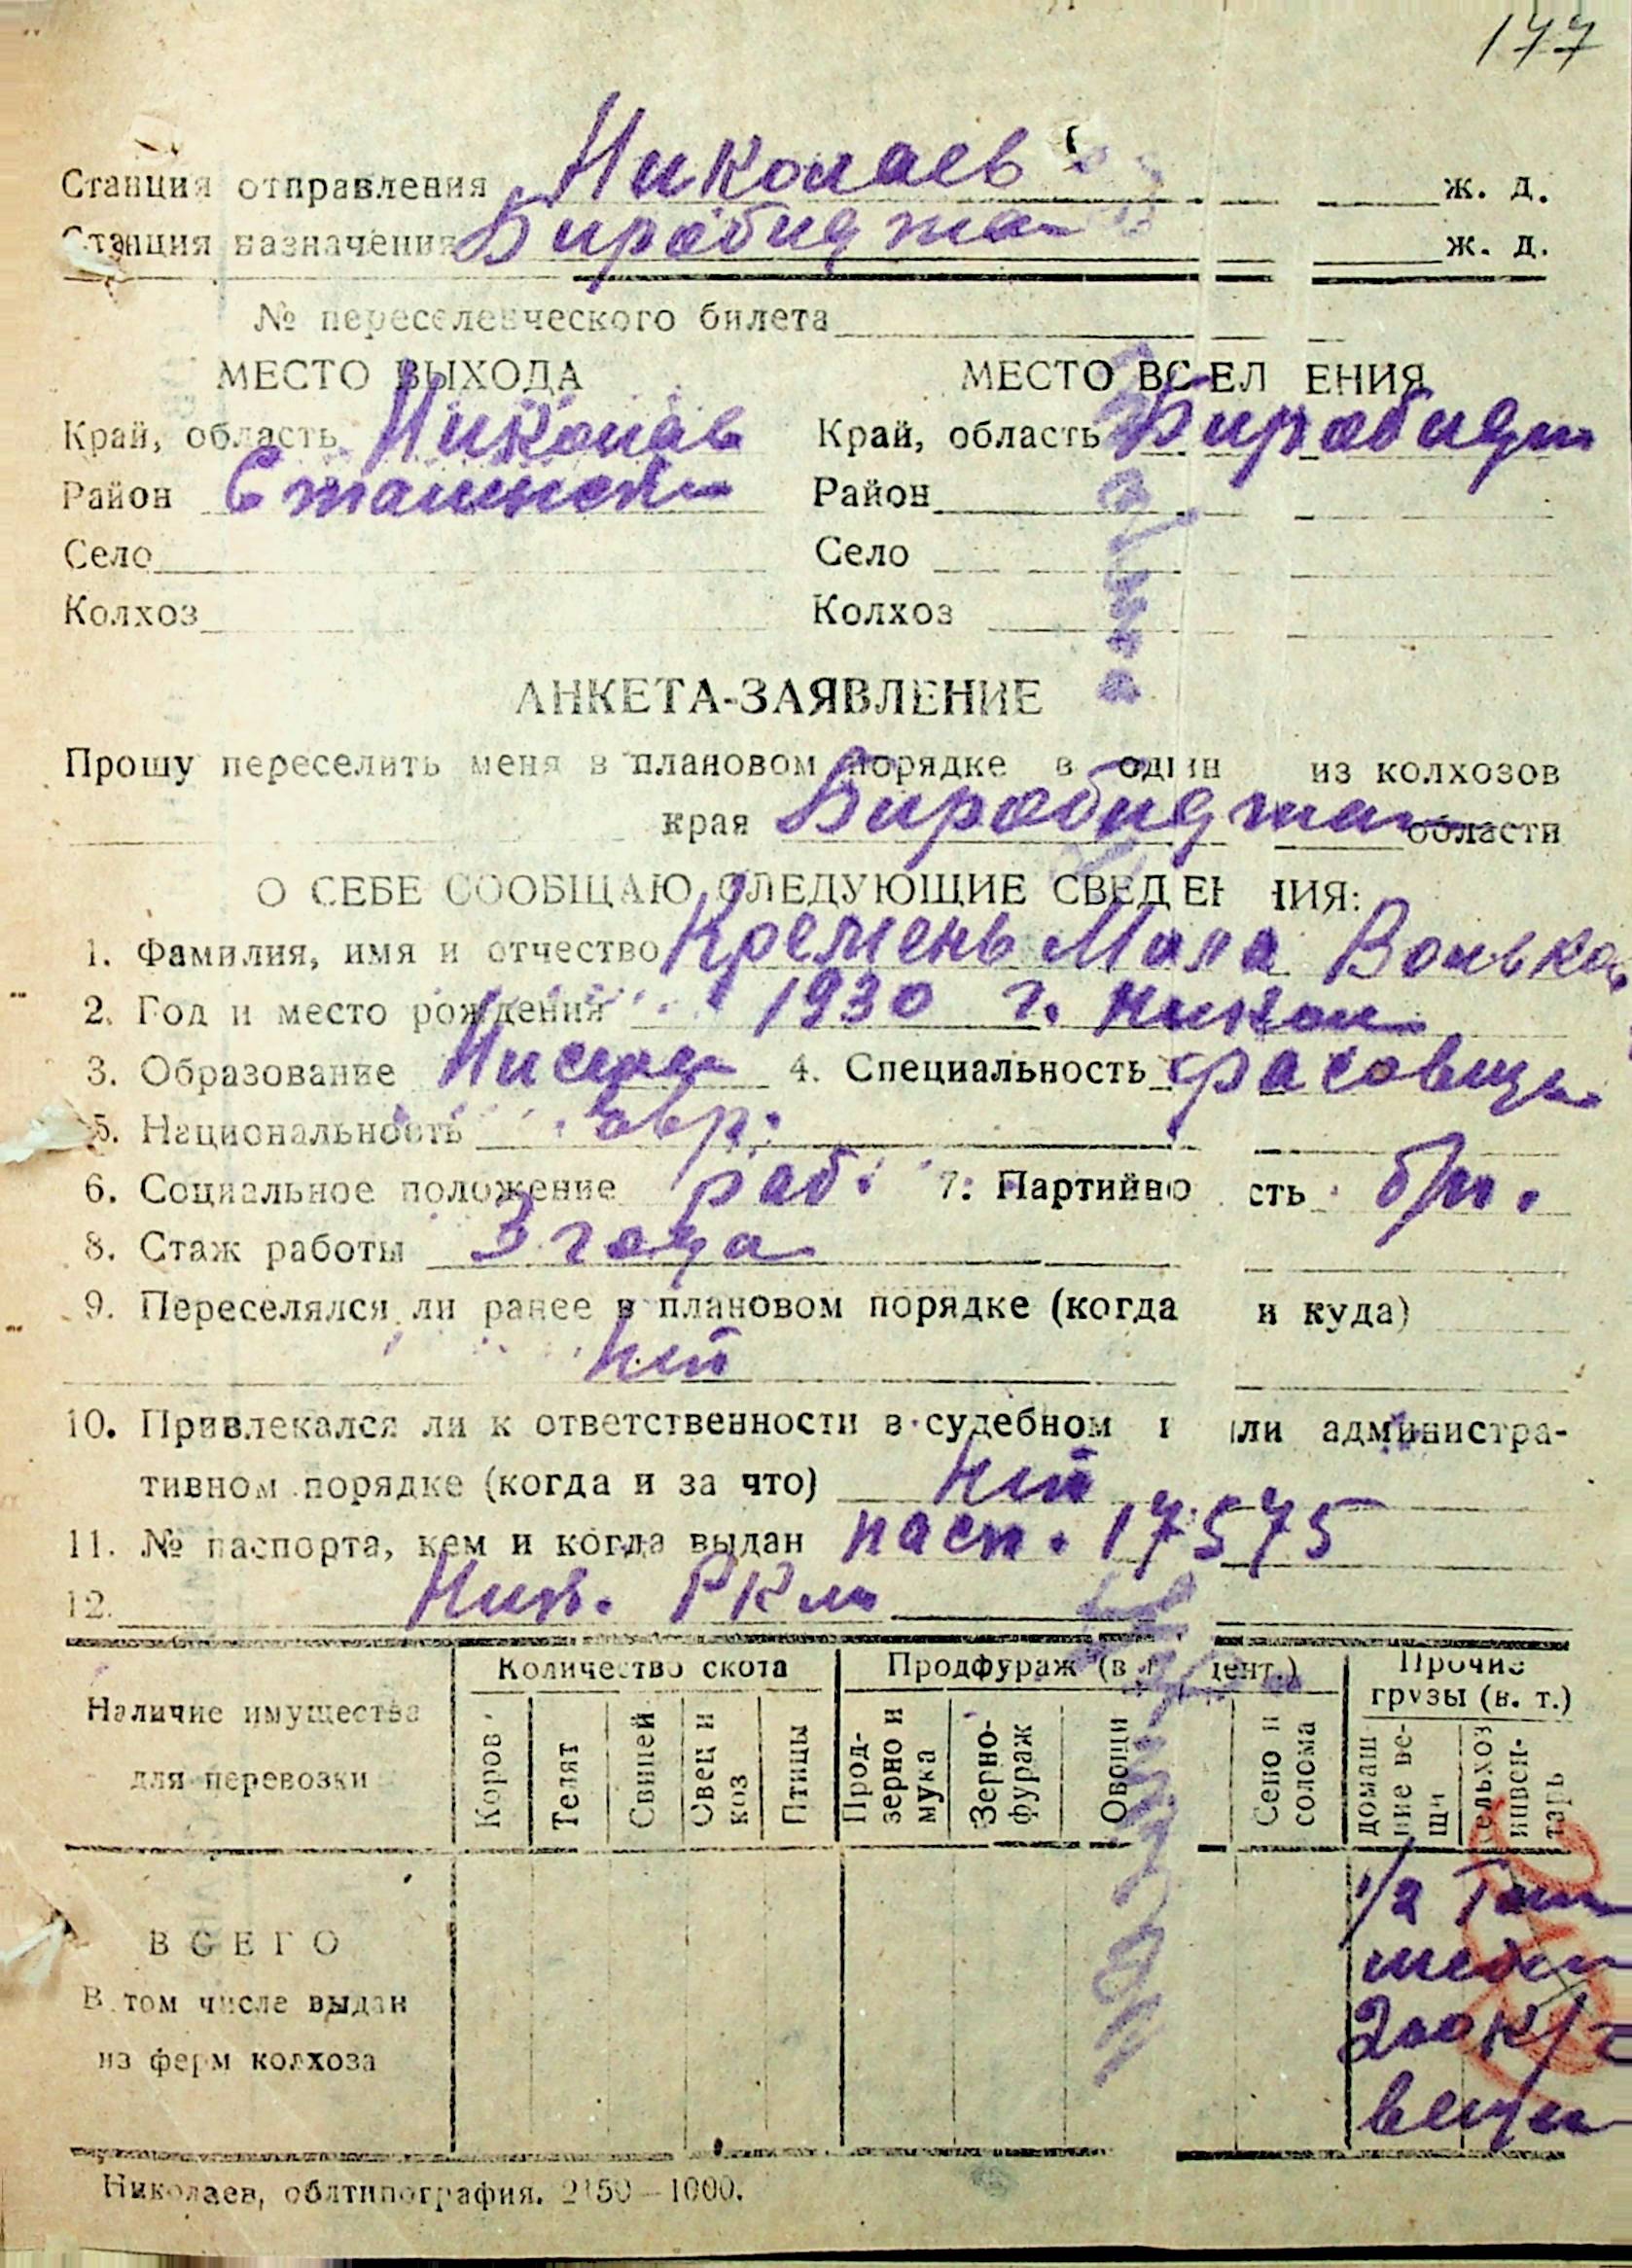 177
Станция отправления Николаев ж. д.
Станция назначения Биробиджан ж. д.
№ переселенческого билета
МЕСТО ВЫХОДА МЕСТО ВСЕЛЕНИЯ
Край, область Николаев Край, область Биробиджан
Район Сталинский Район
Село Село
Колхоз Колхоз
АНКЕТА-ЗАЯВЛЕНИЕ
Прошу переселить меня в плановом порядке в один из колхозов
края Биробиджан области
О СЕБЕ СООБЩАЮ СЛЕДУЮЩИЕ СВЕДЕНИЯ:
1. Фамилия, имя и отчество Кремень Маля Вольков
2. Год и место рождения 1930 г. Никол
3. Образование Низшее 4. Специальность фасовщи
5. Национальность евр.
6. Социальное положение раб. 7. Партийность б/п.
8. Стаж работы 3 года
9. Переселялся ли ранее в плановом порядке (когда и куда)
нет
10. Привлекался ли к ответственности в судебном или администра-
тивном порядке (когда и за что) нет
11. № паспорта, кем и когда выдан пасп. 17575
12. Ник. РКМ
Наличие имущества для перевозки
Количество скота Продфураж (в цент.) Прочие грузы (в. т.)
Коров Телят Свиней Овец и коз Птицы Прод-зерно и мука Зерно-фураж Овощи Сено и солома домашние вещи сельхоз инвентарь
ВСЕГО 1/2 Тон
мебел
В том числе выдан 200 к/г
из ферм колхоза вещи
Николаев, облтипография. 2150—1000.